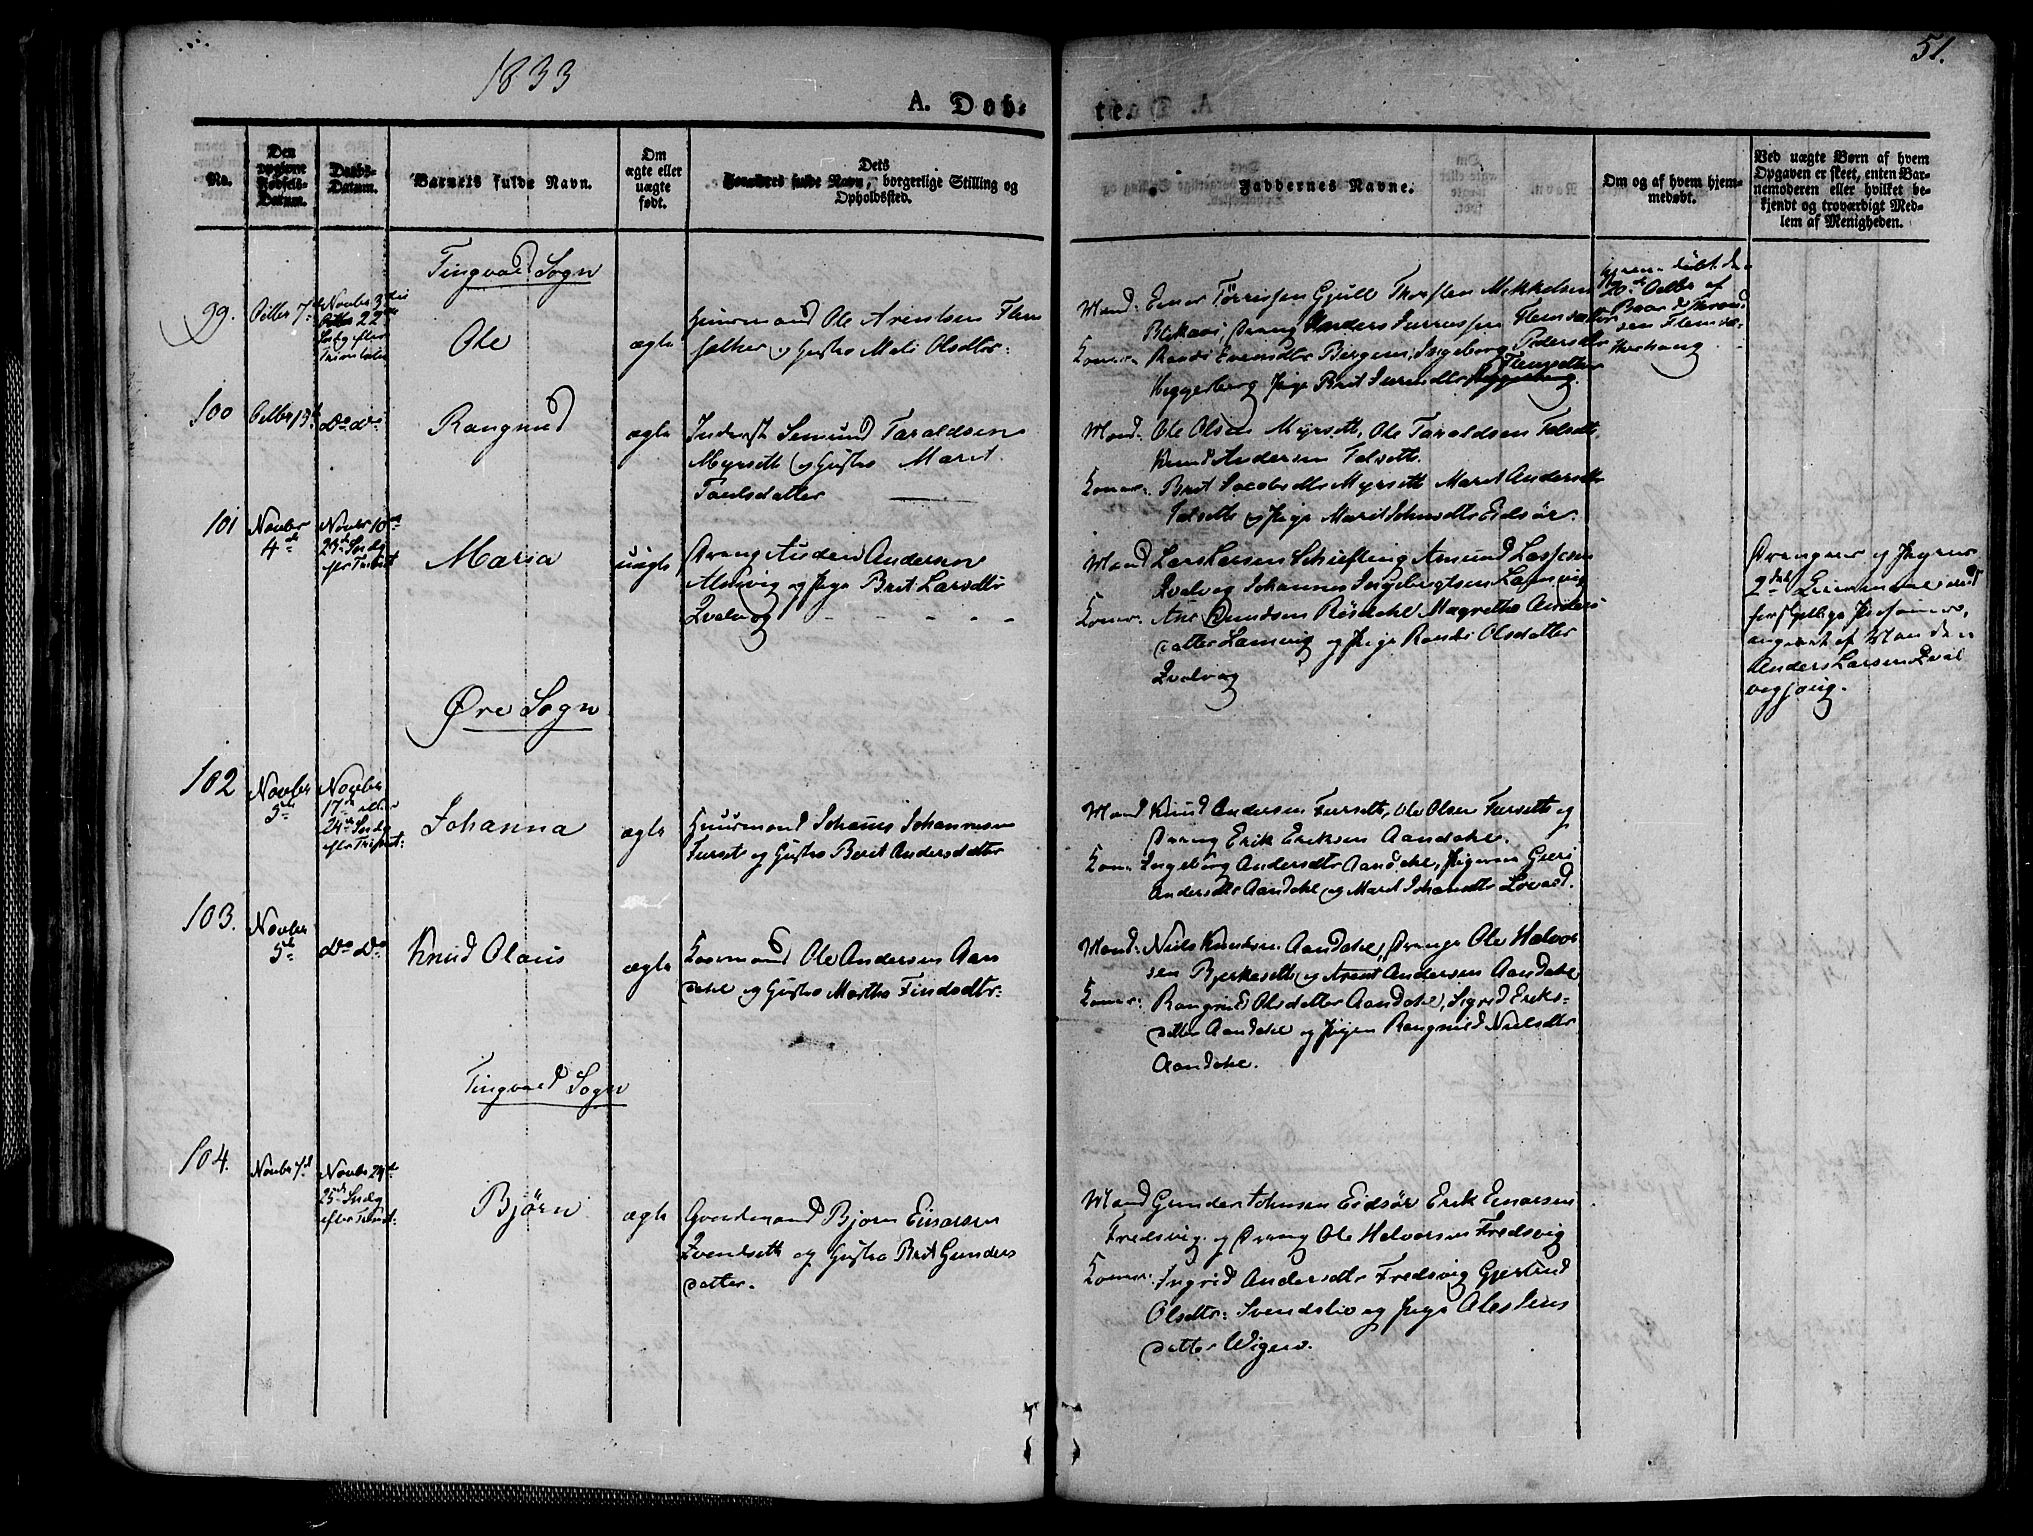 1833
51.
A. Døb-
te.
No.
Den opgivne Fødsels-Datum.
Daabs-Datum.
Barnets fulde Navn.
Om ægte eller uægte født.
Dets Forældres fulde Navn, borgerlige Stilling og Opholdssted.
Faddernes Navne.
Om og af hvem hjem-
medøbt.
Ved uægte Børn af hvem
Opgaven er skeet, enten Bar-
nemoderen eller hvilket be-
kjendt og troværdigt Med-
lem af Menigheden.
Tingvold Sogn
99.
Octbr 7de
Novbr 3die
22de
Ole
ægte
Ole Arentsen Flem
sæther og Gustro Mali Olsdtr:
Mænd: Einar Tørrissen Gjull Thosten Mikkelsen
Koner: Randi Evensdtr Bergem, Ingeborg Pedersdtr
Heggerberg Pige Brit Iversdtr
20de Octbr af
100
Octbr 13de
do do
Rangnild
ægte
Inderst Semund Taraldsen
Myrseth og Gustro Marit
Poulsdatter
Mænd: Ole Olsen Myrseth, Ole Taraldsen Talseth
Knud Andersen Talseth.
Koner: Brit Jacobsdtr Myrseth Marit Andersdtr
Talseth og Pige Marit Johnsdtr Eidsør.
101
Novbr
4de
Novbr 10de
23de Sndg
efter Trinit
Maria
uægte
Dreng Anders Andersen
Alsvig og Pige Brit Larsdtr
Qvalvog
Mænd Lars Larsen Schiefling Asmund Lassesen
Qvalvog Johannes Ingebrigtsen Lamvig
Koner: Ane Knudsen Røsdahl Magrethe Anders
datter Lamvig og Pige Randi Olsdatter
Qvalvog
Drengens og Pigens
2det Leiermaal med
forskjellige Personer,
angivet af Manden
Anders Larsen Qval
vog
Øre Sogn
102
Novbr
5te
Novbr
17de
24de Sndg
efter Trinit:
Johanna
ægte
Huusmand Johans Johannesen
Furset og Gustro Berit Andersdatter
Mænd Knud Andersen Furseth, Ole Olsen Furseth og
Dreng Erik Eriksen Aandahl.
Kon: Ingeborg Andersdtr Aandahl, Pigerne Guri
Andersdtr Aandahl og Marit Johansdtr Lovold.
103.
Novbr
5te
do do
Knud Olaus
ægte
Ole Andersen Aan
dahl og Gustro Martha Findsdtr:
Mænd: Niels Knudsen Aandahl, Drenge Ole Halvor
sen Bjerkeseth og Arent Andersen Aandahl
Koner: Rangnild Olsdatter Aandahl, Sigrid Eriks-
datter Aandahl og Pigen Rangnild Nielsdtr
Aandahl.
Tingvold Sogn
104.
Novbr 7de
Novbr 24de
25de Sndg
efter Trinit:
Bjørn
ægte
Gaardmand Bjørn Einarsen
Qvendseth og Gustro Brit Gunders
datter.
Mænd Gunder Johnsen Eidsør Erik Enarsen
Fredsvig og Dreng Ole Halvorsen Fredsvig
Koner: Ingrid Andersdtr Fredsvig Gjertrud
Olsdtr: Svendsli og Pige Ales Jens
datter Wigen.